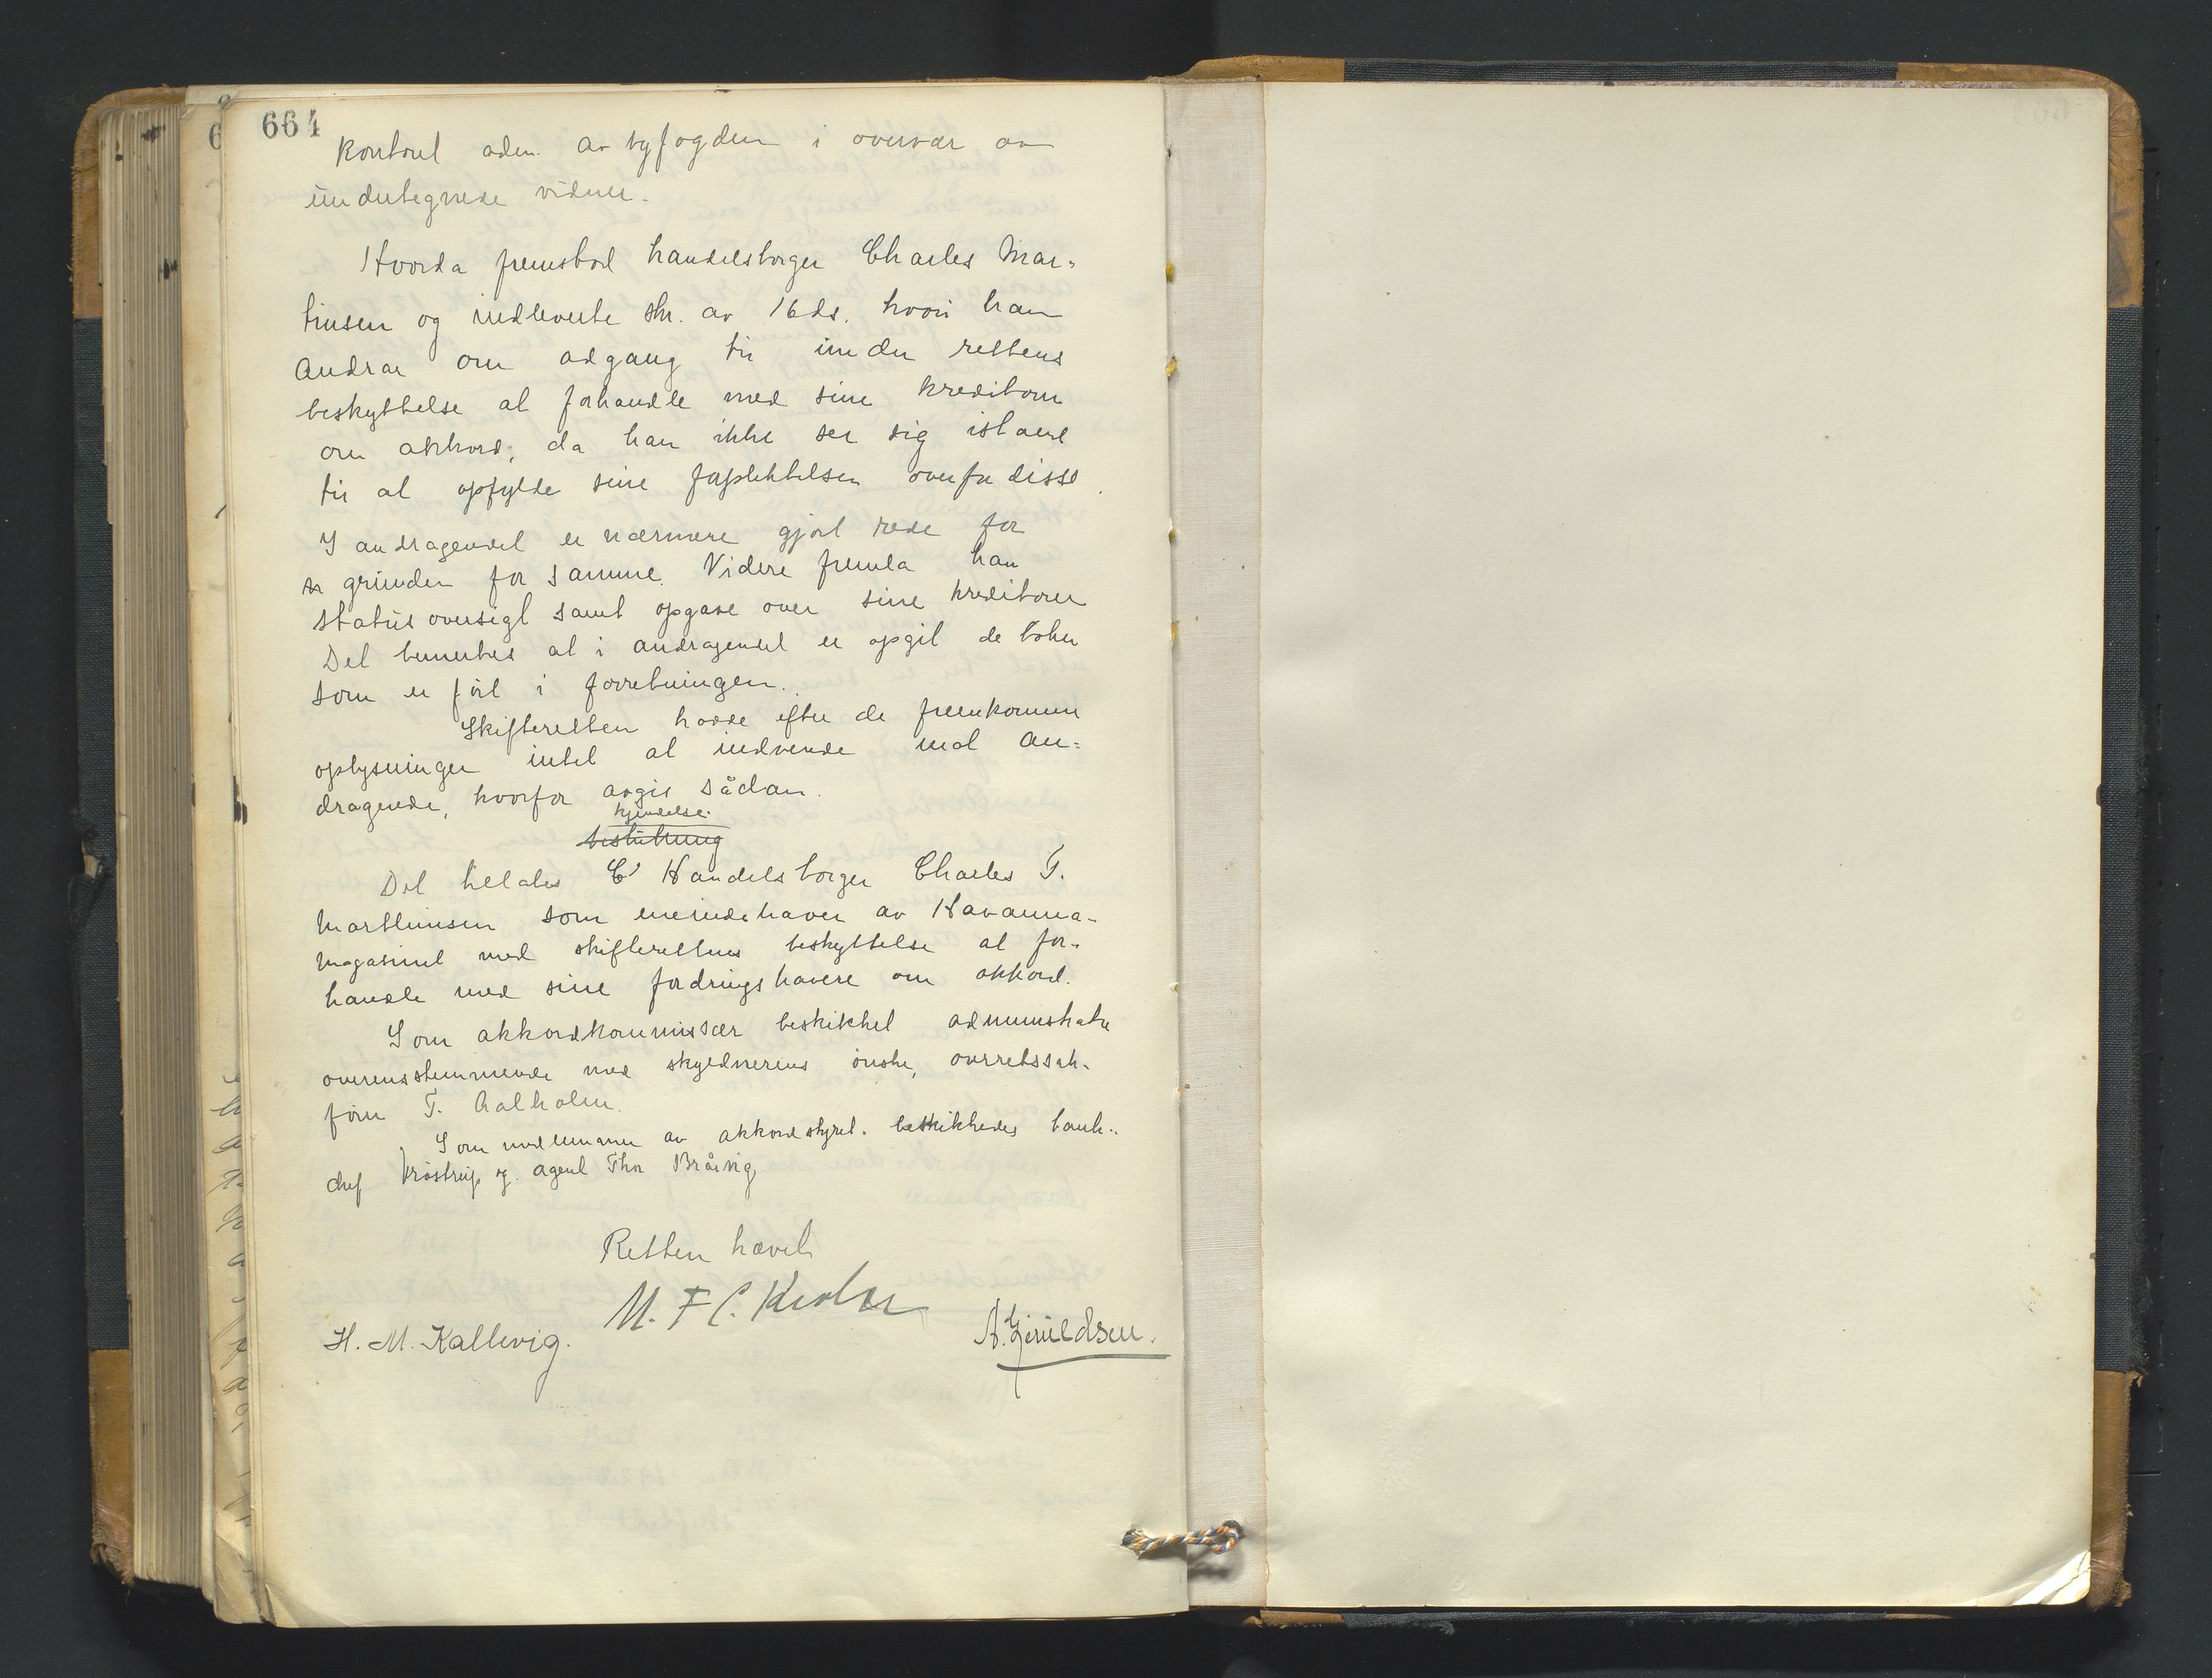 664
kontoret adm. av byfogden i overvær av
undertegnede vidner.
Hvorda fremstod handelsborger Charles Mar=
tinsen og indleverte skr. av 16 ds. hvori han
andrar om adgang til under rettens
beskyttelse at forhandle med sine kreditorer
om akkord, da han ikke ser sig istand
til at opfylde sine forpliktelser overfor disse.
I andragendet er nærmere gjort rede for
grunden for samme. Videre fremla han
status oversigt samt opgave over sine kreditorer
Det bemerkes at i andragendet er opgit de bøker
som er ført i forretningen.
Skifteretten hadde efter de fremkomne
oplysninger intet at indvende mot an=
dragende, hvorfor avgis sådan
kjendelse.
beslutning
Det tillates Handelsborger Charles T.
Marthinsen som eneindehaver av Havanna-
magasinet med skifterettens beskyttelse at for-
handle med sine fordringshavere om akkord.
Som akkordkommissær beskikket administrator
overensstemmende med skyldnerens ønske, overretssak-
fører T. Aalholm.
Som medlemmer av akkordstyret beskikkedes bank-
chef Krøstrup og agent Thor Bråvig
Retten hævet
M. F C. Krohn
H. M. Kallevig.